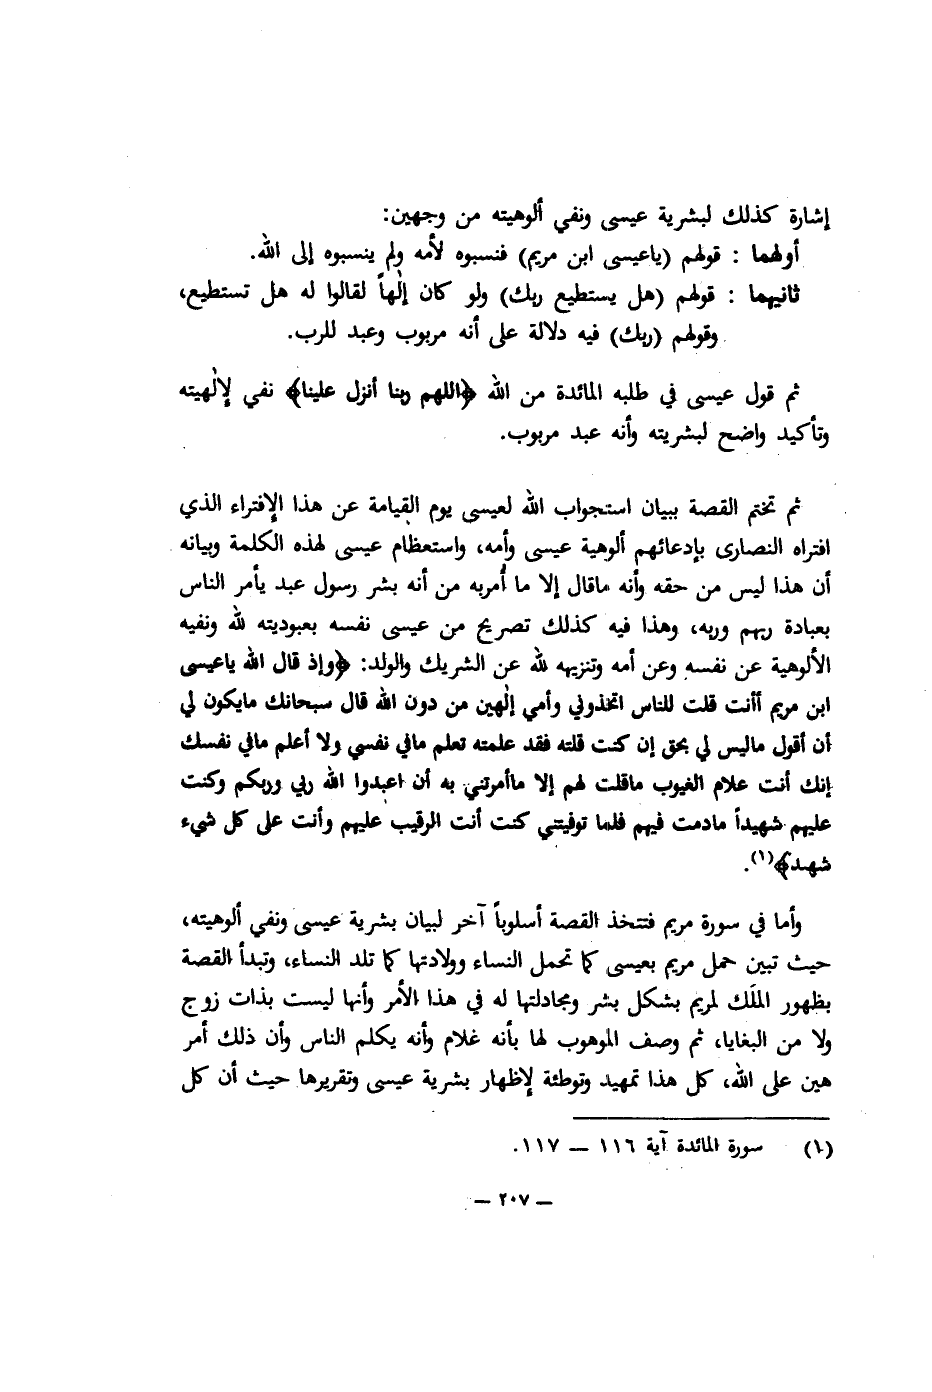 إشارة كذلك لبشرية عيسى ونفي ألوهيته من وجهين:
أولهما : قولهم (ياعيسى ابن مريم) فنسبوه لأمه ولم ينسبوه إلى الله.
ثانيهما : قولهم (هل يستطيع ربك) ولو كان إلٰهاً لقالوا له هل تستطيع،
وقولهم (ربك) فيه دلالة على أنه مربوب وعبد للرب.
ثم قول عيسى في طلبه المائدة من الله ﴿اللهم ربنا أنزل علينا﴾ نفي لإلٰهيته
وتأكيد واضح لبشريته وأنه عبد مربوب.
ثم تختم القصة ببيان استجواب الله لعيسى يوم القيامة عن هذا الإفتراء الذي
افتراه النصارى بإدعائهم ألوهية عيسى وأمه، واستعظام عيسى لهذه الكلمة وبيانه
أن هذا ليس من حقه وأنه ماقال إلا ما أُمربه من أنه بشر رسول عبد يأمر الناس
بعبادة ربهم وربه، وهذا فيه كذلك تصريح من عيسى نفسه بعبوديته لله ونفيه
الألوهية عن نفسه وعن أمه وتنزيهه لله عن الشريك والولد: ﴿وإذ قال الله ياعيسى
ابن مريم أأنت قلت للناس اتخذوني وأمي إلٰهين من دون الله قال سبحانك مايكون لي
أن أقول ماليس لي بحق إن كنت قلته فقد علمته تعلم مافي نفسي ولا أعلم مافي نفسك
إنك أنت علام الغيوب ماقلت لهم إلا ماأمرتني به أن اعبدوا الله ربي وربكم وكنت
عليهم شهيداً مادمت فيهم فلما توفيتني كنت أنت الرقيب عليهم وأنت على كل شيء
شهيد﴾(١).
وأما في سورة مريم فتتخذ القصة أسلوباً آخر لبيان بشرية عيسى ونفي ألوهيته،
حيث تبين حمل مريم بعيسى كما تحمل النساء وولادتها كما تلد النساء، وتبدأ القصة
بظهور الملَك لمريم بشكل بشر ومجادلتها له في هذا الأمر وأنها ليست بذات زوج
ولا من البغايا، ثم وصف الموهوب لها بأنه غلام وأنه يكلم الناس وأن ذلك أمر
هين على الله، كل هذا تمهيد وتوطئة لإظهار بشرية عيسى وتقريرها حيث أن كل
(١) سورة المائدة آية ١١٦ — ١١٧.
— ٢٠٧ —